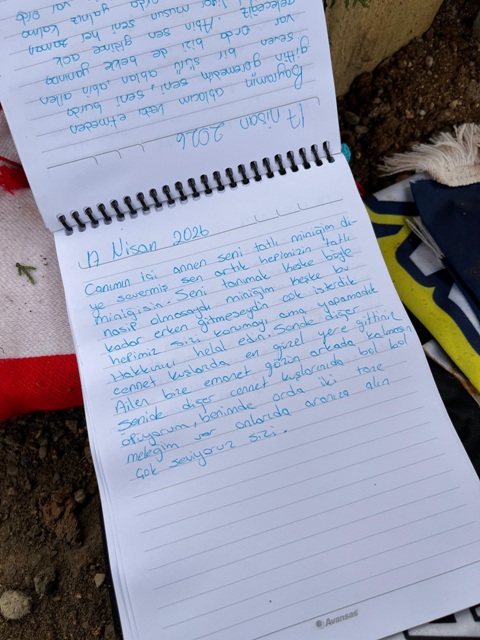 17 Nisan 2026
Bayramin ablacım veda etmeden
gittin göremesin seni, seni burda
seven bir sürü ablan abin ailen
var orda bizi de bekle yanına
geleceğiz Atin sen gülme çok
seni her zaman
yalnız kalma
17 Nisan 2026
Canımın isi annen seni tatlı miniğim di-
ye severmiş sen artık hepimizin tatlı
miniğisin. Seni tanımak keşke böyle
nasip olmasaydı miniğim keşke bu
kadar erken gitmeseydin çok isterdik
hepimiz sizi korumayı ama yapamadık
Hakkınızı helal edin. Sende diğer
cennet kuşlarıda en güzel yere gittiniz
Ailen bize emanet gözün arkada kalmasın
Senide diğer cennet kuşlarınıda bol bol
öpüyorum, benimde orda iki tane
meleğim var onlarıda aranıza alın
Çok seviyoruz sizi.
Avansas